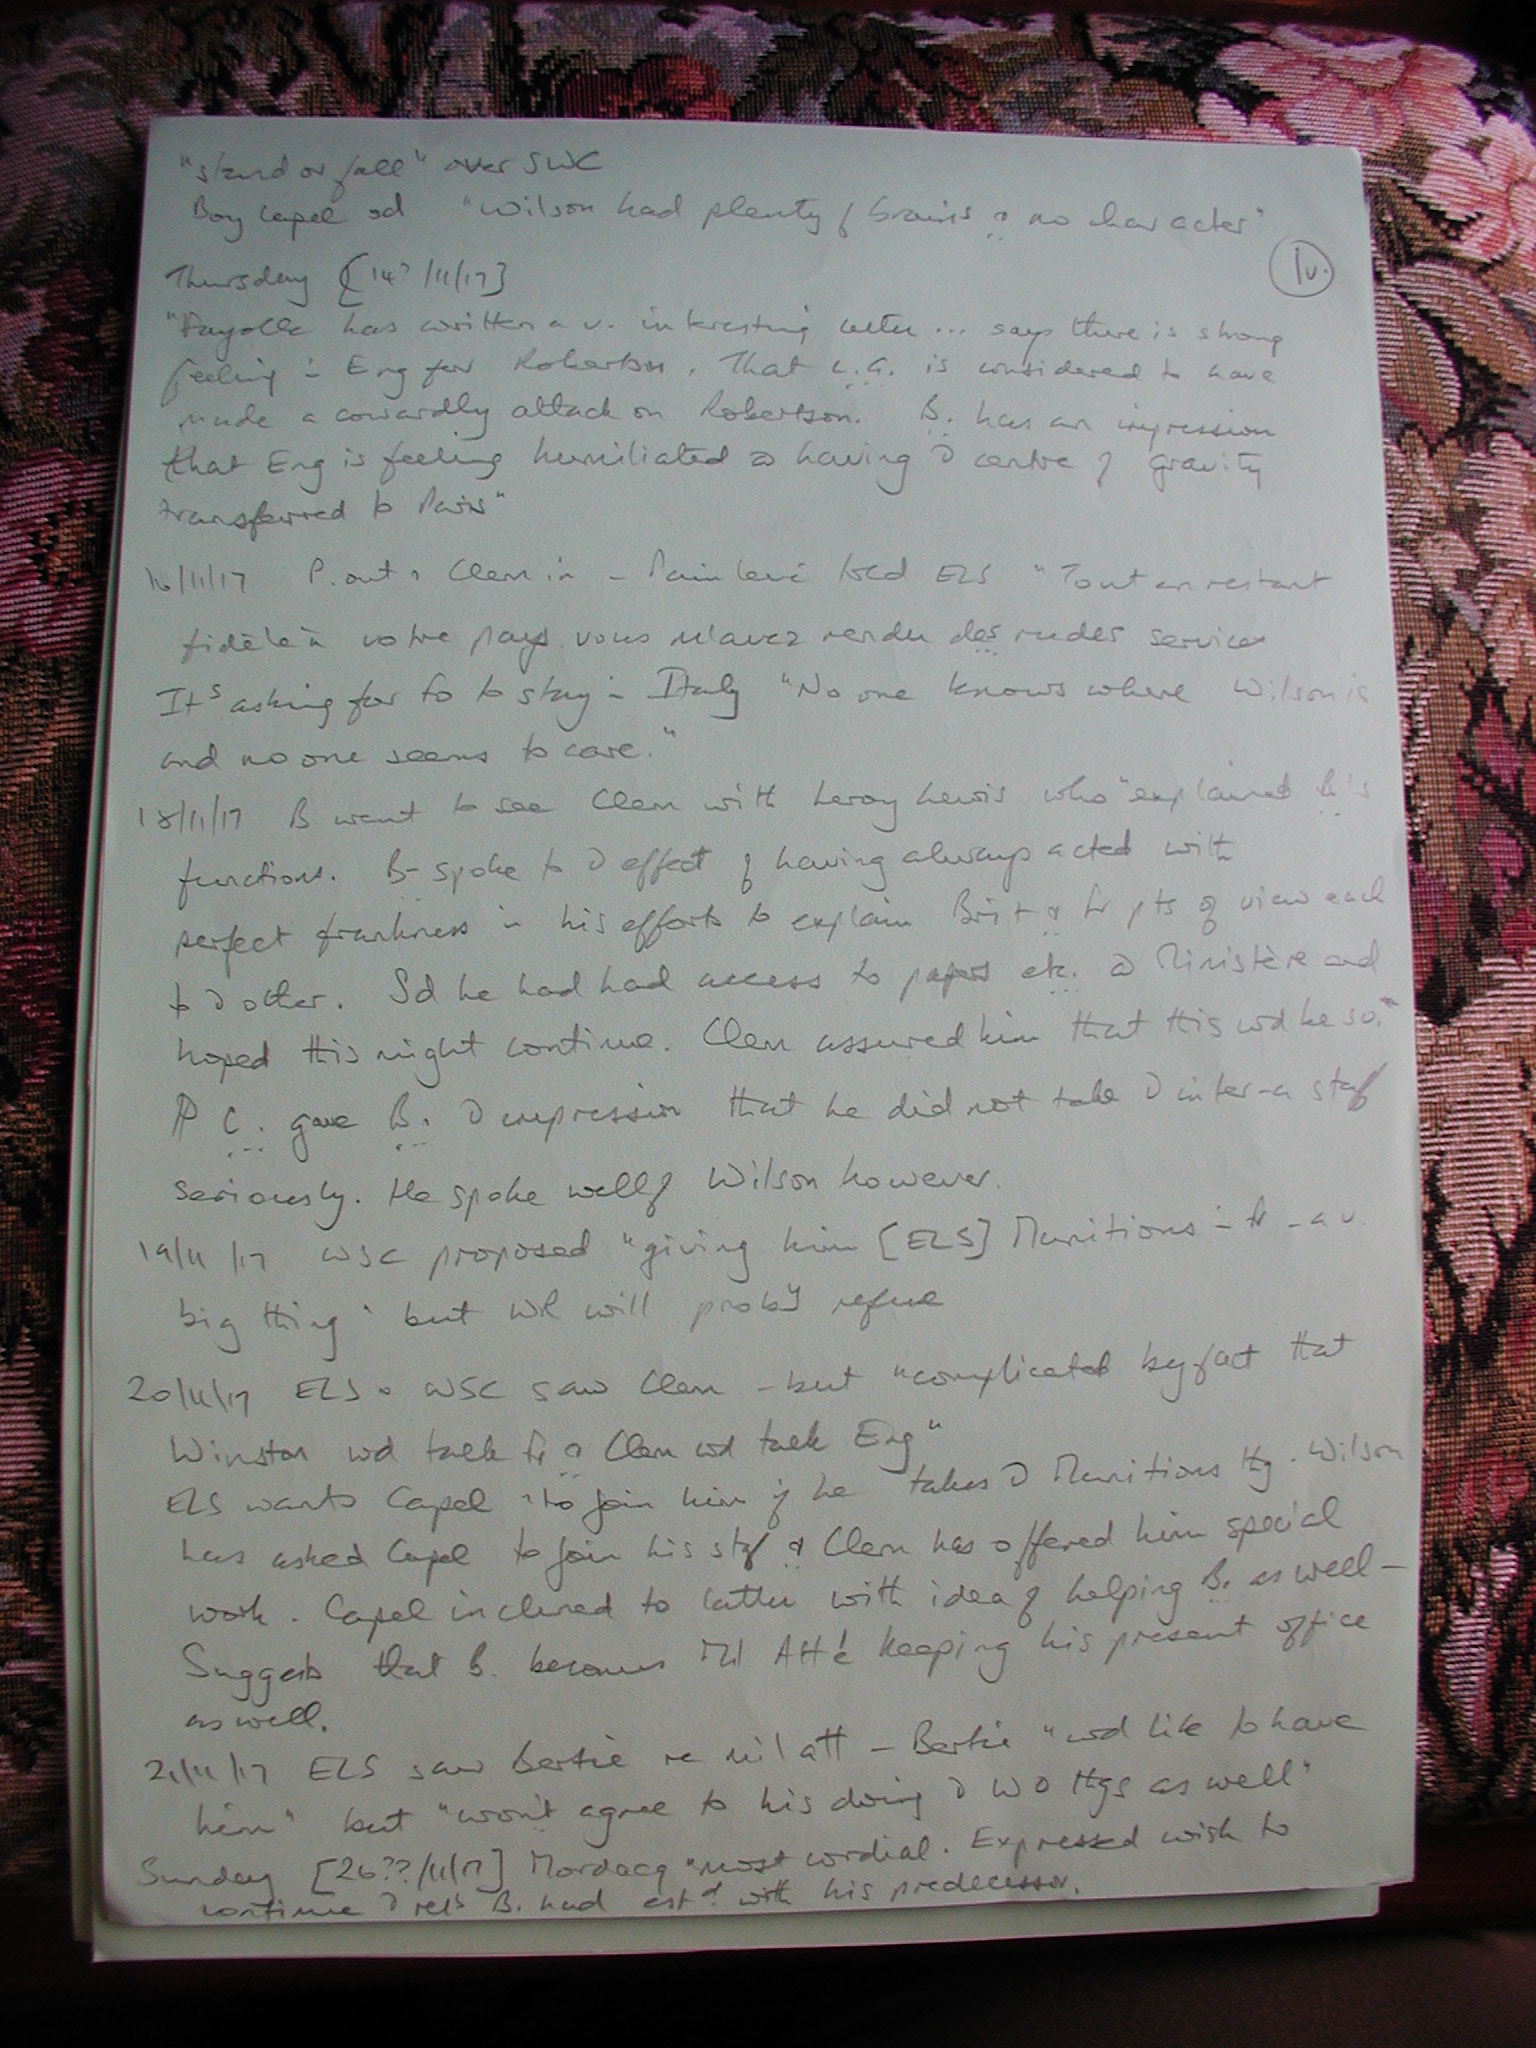 "stand or fall" over SWC
Boy Capel sd "Wilson had plenty of brains & no character"
iv.
Thursday [14?/11/17]
"Fayolle has written a v. interesting letter... says there is strong
feeling in Eng for Robertson. That L.G. is considered to have
made a cowardly attack on Robertson. B. has an impression
that Eng is feeling humiliated @ having centre of gravity
transferred to Paris"
16/11/17 P. out & Clem in - Painlevé told ELS "Tout en restant
fidèle à votre pays vous m'avez rendu des rudes services
Its asking for Fo to stay in Italy "No one knows where Wilson is
and no one seems to care."
18/11/17 B. went to see Clem with Leroy Lewis who "explained B's
functions. B- spoke to effect of having always acted with
perfect frankness in his efforts to explain Brit & Fr pts of view each
to other. Sd he had had access to papers etc. @ Ministère and
hoped this might continue. Clem assured him that this wd be so."
C. gave B. impression that he did not take inter-a staff
seriously. He spoke well of Wilson however.
19/11/17 WSC proposed "giving him [ELS] Munitions in Fr - a v.
big thing" but will probly refuse
20/11/17 ELS & WSC saw Clem - but "complicated by fact that
Winston wd talk Fr & Clem wd talk Eng"
ELS wants Capel to join him if he takes Munitions thg. Wilson
has asked Capel to join his staff & Clem has offered him special
work. Capel inclined to latter with idea of helping B. as well -
Suggests that B. becomes Mil Atté keeping his present office
as well.
21/11/17 ELS saw Bertie re mil att - Bertie "wd like to have
him" but "won't agree to his doing WO thgs as well"
Sunday [26??/11/17] Mordacq "most cordial. Expressed wish to
continue rels B. had estd with his predecessor.